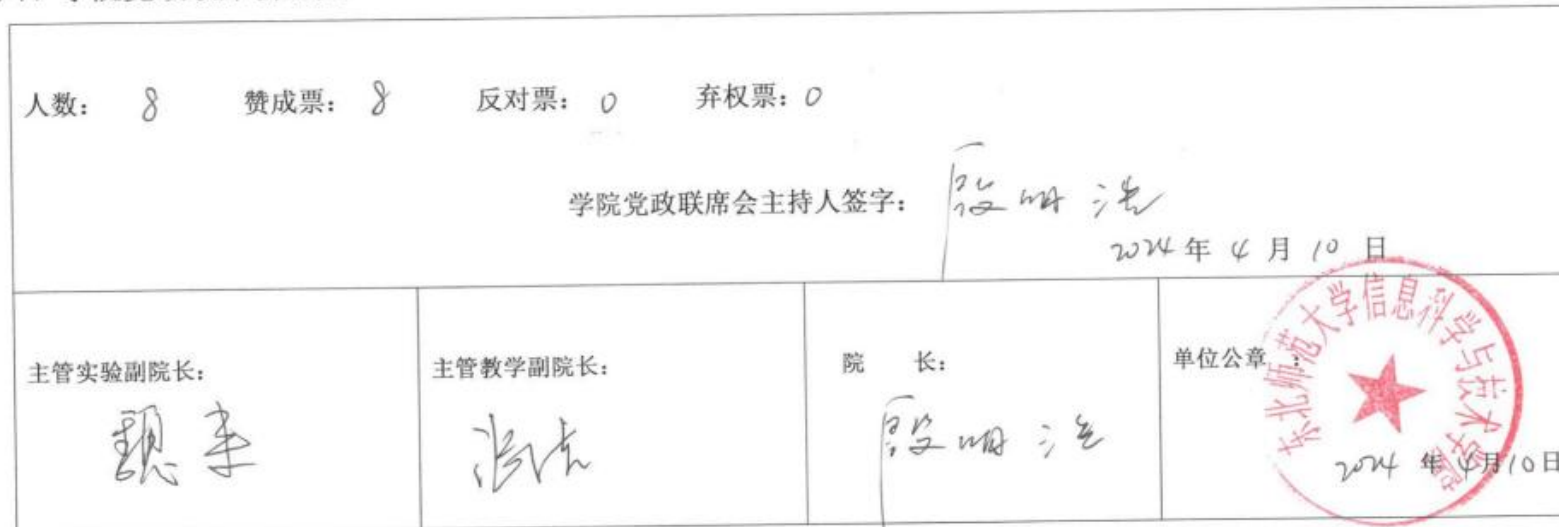 人数: 8 赞成票: 8 反对票: 0 弃权票: 0
学院党政联席会主持人签字: 殷明浩
2024年4月10日
主管实验副院长:
主管教学副院长:
院 长:
殷明浩
单位公章:
东北师范大学信息科学与技术学院
2024年4月10日